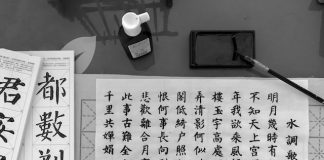 水調歌
明月幾時有
不知天上宮
年我欲乘風
樓玉宇高
弄清影何似
閣低綺户照
恨何事長向
悲歡離合月
此事古難全
千里共嬋娟
都數
君